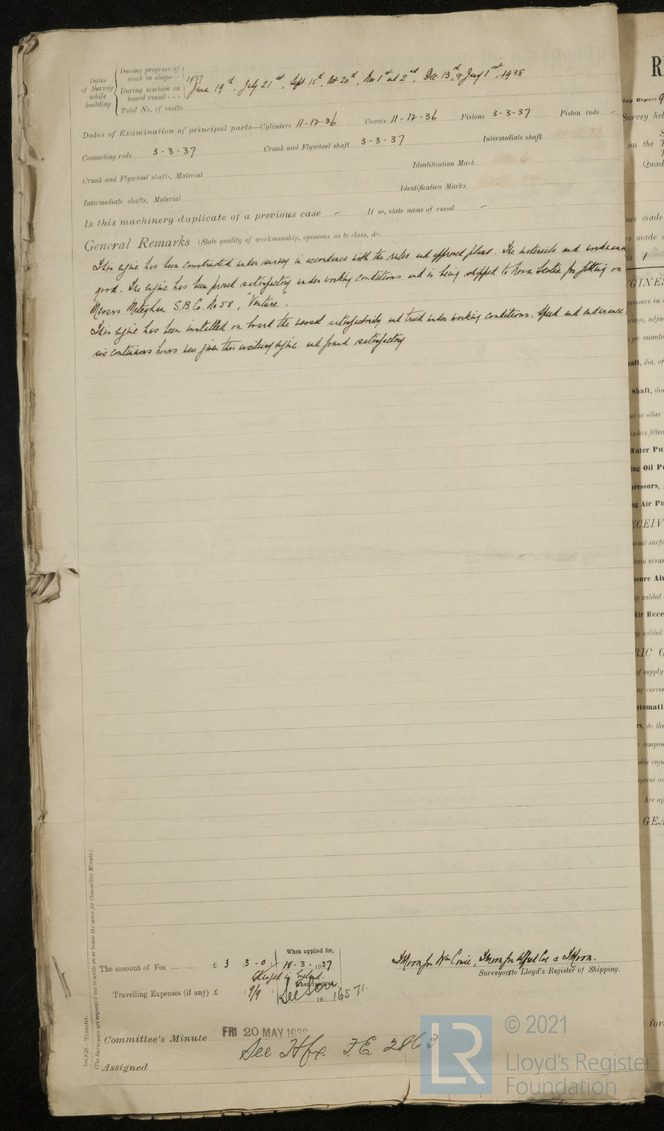 Dates of Survey while building
During progress of work in shops - -
During erection on board vessel - - -
Total No. of visits
1937 June 19th, July 21st, Sept 15th, Oct 20th, Nov 1st and 2nd, Dec 13th, & Jany 1st, 1938
Dates of Examination of principal parts—Cylinders 11-12-36 Covers 11-12-36 Pistons 3-3-37 Piston rods -
Connecting rods 3-3-37 Crank and Flywheel shaft 3-3-37 Intermediate shaft
Crank and Flywheel shafts, Material Identification Mark
Intermediate shafts, Material Identification Marks
Is this machinery duplicate of a previous case - If so, state name of vessel -
General Remarks (State quality of workmanship, opinions as to class, &c.
This engine has been constructed under survey in accordance with the rules and approved plans. The materials and
good. The engine has been proved satisfactory under working conditions and is being shipped to Nova Scotia for fitting on
Messrs Meteghan S.B. Co. No 58, "Venture".
This engine has been installed on board the vessel satisfactorily and tried under working conditions. Speed and endurance
six continuous hours was given this auxiliary engine and found satisfactory
The amount of Fee ... ... £ 3 3-0: When applied for, 18-3-1937
Charged in England.
Travelling Expenses (if any) £ 9/9 16571
J Moon for Wm Cowie, J Moon for Alfred Coe & J Moon.
Surveyors to Lloyd's Register of Shipping.
Committee's Minute FRI 20 MAY 1938
See Hfx F.E. 2863
Assigned
(The Surveyors are requested not to write on or below the space for Committee's Minute.)
© 2021
Lloyd's Register
Foundation
LR